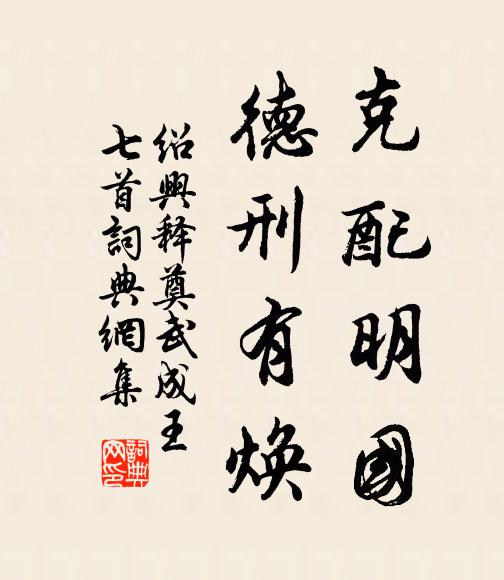 克配明國
德刑有煥
紹興释奠武成王
七首詞典網集
詞典
网印